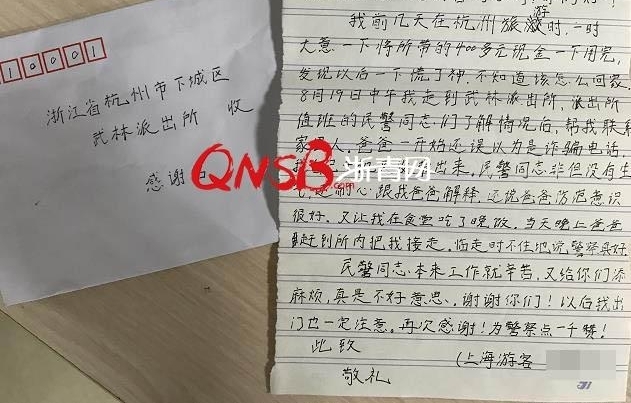 10001
浙江省杭州市下城区
武林派出所 收
感谢
QNSB.com 浙青网
我前几天在杭州旅游时,一时
大意一下将所带的400多元现金一下用完,
发现以后一下慌了神,不知道该怎么回家.
8月19日中午我走到武林派出所,派出所
值班的民警同志们了解情况后,帮我联系
家人,爸爸一开始还误以为是诈骗电话,
出来.民警同志非但没有生
耐心跟我爸爸解释,还说爸爸防范意识
很好.又让我在食堂吃了晚饭.当天晚上爸爸
赶到所内把我接走.临走时不住地说警察真好.
民警同志本来工作就辛苦,又给你们添
麻烦,真是不好意思.谢谢你们!以后我出
门也一定注意.再次感谢!为警察点一千赞!
此致 (上海游客
敬礼